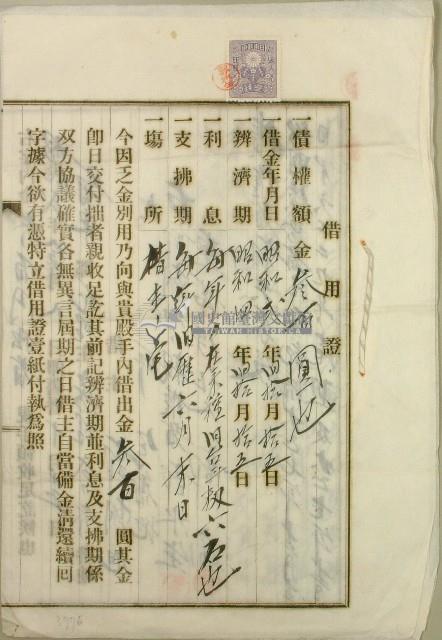 借用證
一債權額金參百圓也
一借金年月日 昭和 年 拾月拾五日
一辨濟期 昭和 年 拾月拾五日
一利息 每年 六石也
一支拂期 每年旧曆六月末日
一塲所 借主 宅
今因乏金別用乃向與貴殿手內借出金參百圓其金
卽日交付拙者親收足訖其前記辨濟期並利息及支拂期係
双方協議確實各無異言屆期之日借主自當備金淸還續回
字據今欲有憑特立借用證壹紙付執爲照
國史館臺灣文獻館
TAIWAN HISTORICA